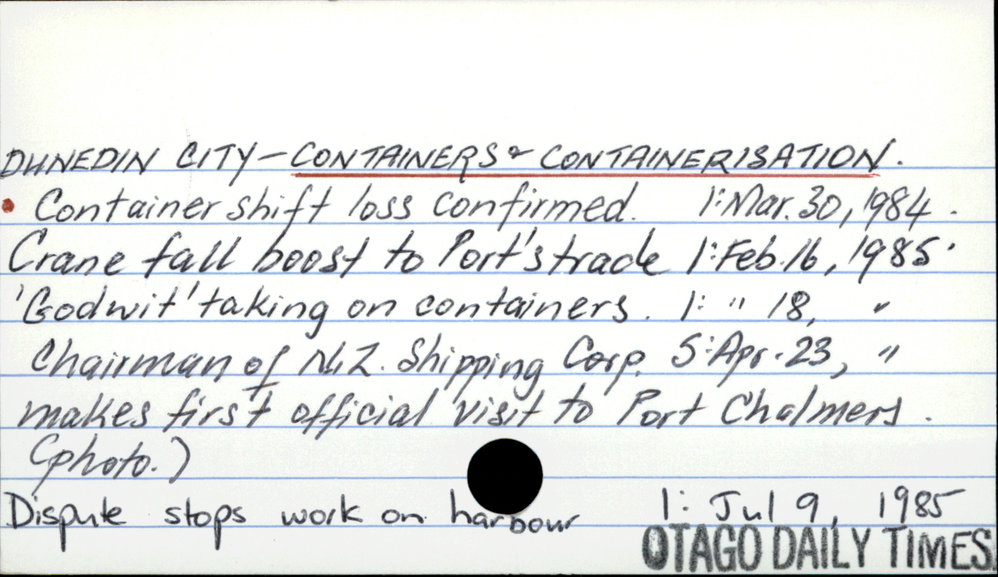 DUNEDIN CITY - CONTAINERS & CONTAINERISATION.
• Container shift loss confirmed. 1: Mar. 30, 1984.
Crane fall boost to Port's trade 1: Feb. 16, 1985.
'Godwit' taking on containers. 1: " 18, "
Chairman of N.Z. Shipping Corp. 5: Apr. 23, "
makes first official visit to Port Chalmers.
(photo.)
Dispute stops work on harbour 1: Jul 9, 1985
OTAGO DAILY TIMES